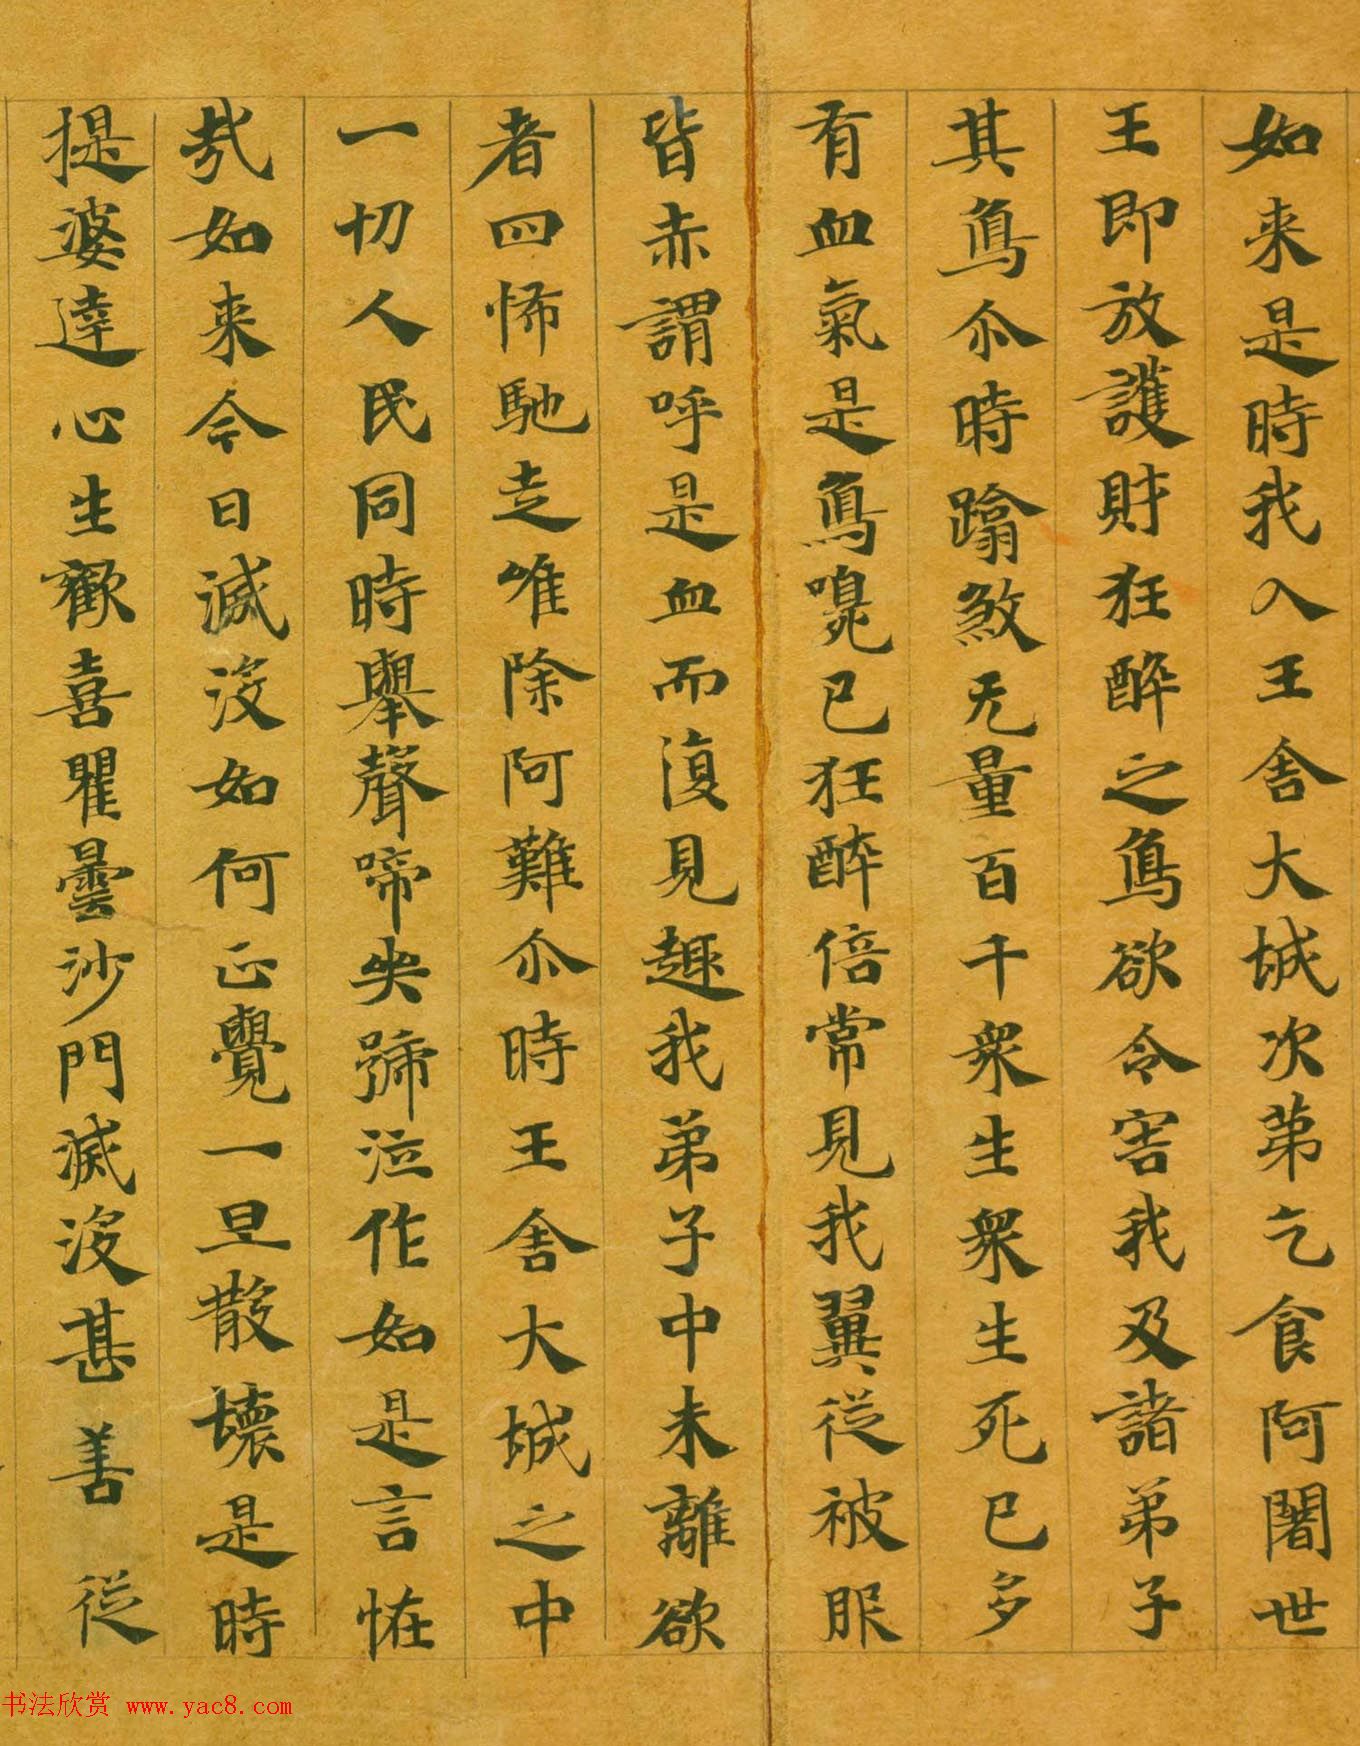 如来是時我入王舍大城次苐乞食阿闍世
王即放護財狂醉之鳥欲令害我及諸弟子
其鳥尒時蹹煞无量百千衆生衆生死已多
有血氣是鳥嗅已狂醉倍常見我翼從被服
皆赤謂呼是血而復見趣我弟子中未離欲
者四怖馳走唯除阿難尒時王舍大城之中
一切人民同時舉聲啼哭號泣作如是言恠
哉如来今日滅没如何正覺一旦散壞是時
提婆達心生歡喜瞿曇沙門滅没甚善從
书法欣赏 www.yac8.com